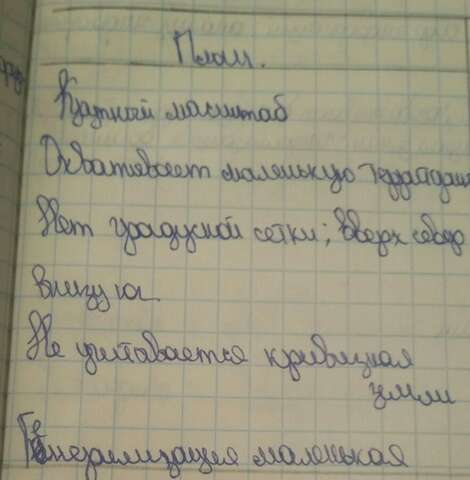 План.
Крупный масштаб
Охватывает маленькую территорию
Нет градусной сетки; вверх север
внизу юг
Не учитывается кривизна
земли
Генерализация маленькая